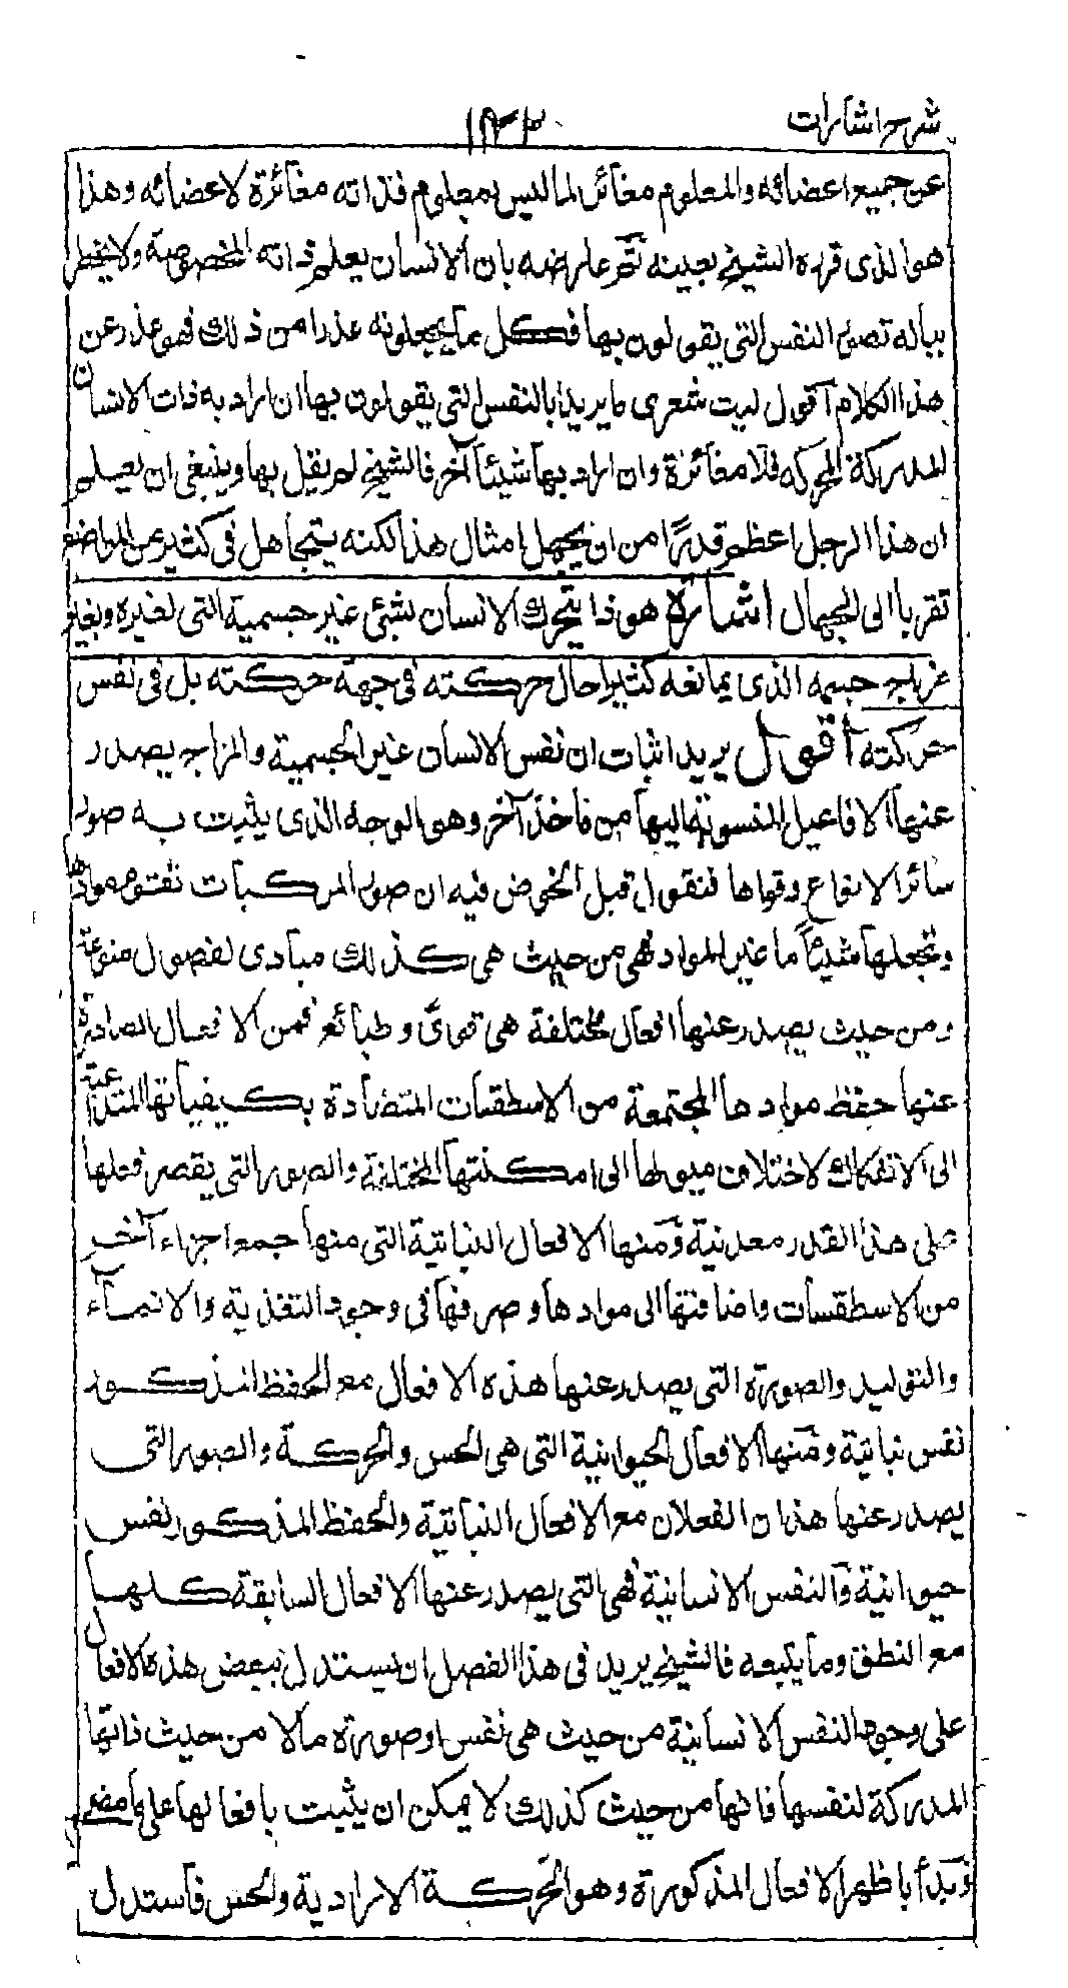 شرح اشارات
١٣٢
عن جميع اعضائه والمعلوم مغائر لما ليس بمعلوم فذاته مغائرة لاعضائه وهذا
هو الذى قرره الشيخ بعينه ثم عارضه بان الانسان يعلم ذاته المخصوصة ولا يخطر
بباله تصور النفس التى يقولون بها فكل ما يجعلونه عذرا من ذلك فهو عذر عن
هذا الكلام اقول ليت شعرى ما يريد بالنفس التى يقولون بها ان اراد به ذات الانسان
المدركة المحركه فلا مغائرة وان اراد بها شيئا آخر فالشيخ لم يقل بها وينبغى ان يعلم
ان هذا الرجل اعظم قدرًا من ان يجهل امثال هذا لكنه يتجاهل فى كثير من المواضع
تقربا الى الجهال اشارة هو ذا يتحرك الانسان بشئ غير جسمية التى لغيره وبغير
مزاج جسمه الذى يمانعه كثيرا حال حركته فى جهة حركته بل فى نفس
حركته أقول يريد اثبات ان نفس الانسان غير الجسمية والمزاج يصدر
عنها الافاعيل المنسوبة اليها من مأخذ آخر وهو الوجه الذى يثبت به صور
سائر الانواع وقواها فنقول قبل الخوض فيه ان صور المركبات تقوم موادها
وتجعلها شيئاً ما غير المواد فهى من حيث هى كذلك مبادى لفصول منوعة
ومن حيث يصدر عنها افعال مختلفة هى قوىً وطبائع فمن الافعال الصادرة
عنها حفظ موادها المجتمعة من الاسطقسات المتضادة بكيفياتها المتداعية
الى الانفكاك لاختلاف ميولها الى امكنتها المختلفة والصور التى يقصر فعلها
على هذا القدر معدنية ومنها الافعال النباتية التى منها جمع اجزاء آخر
من الاسطقسات واضافتها الى موادها وصرفها فى وجوه التغذية والانمآء
والتوليد والصورة التى يصدر عنها هذه الافعال مع الحفظ المذكور
نفس نباتية ومنها الافعال الحيوانية التى هى الحس والحركة والصور التى
يصدر عنها هذان الفعلان مع الافعال النباتية والحفظ المذكور نفس
حيوانية والنفس الانسانية فهى التى يصدر عنها الافعال السابقة كلها
مع النطق وما يتبعه فالشيخ يريد فى هذا الفصل ان يستدل ببعض هذه الافعال
على وجود النفس الانسانية من حيث هى نفس او صورة ما لا من حيث ذاتها
المدركة لنفسها فانها من حيث كذلك لا يمكن ان يثبت بافعالها على ما مضى
فبدأ باظهر الافعال المذكورة وهو الحركة الارادية والحس فاستدل